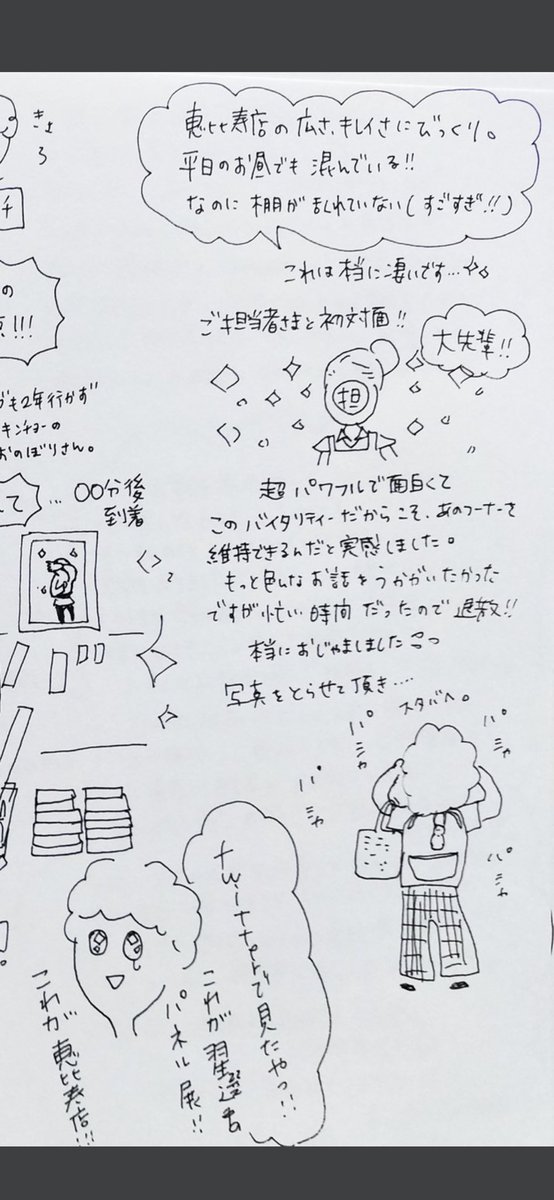 恵比寿店の広さ、キレイさにびっくり。
平日のお昼でも混んでいる!!
なのに棚が乱れていない(すごすぎ!!)
これは本当に凄いです…
ご担当者さまと初対面!!
大先輩!!
担
超パワフルで面白くて
このバイタリティーだからこそ、あのコーナーを
維持できるんだと実感しました。
もっと色んなお話をうかがいたかった
ですが忙しい時間だったので退散!!
本当におじゃましました
写真をとらせて頂き…
スタバへ。
パシャ
パシャ
パシャ
パシャ
きょろ
チ
の
!!!
も2年行かず
キンチョーの
おのぼりさん。
て
…〇〇分後
到着
twitterで見たやつ!!
これが羽生選手
パネル展!!
これが恵比寿店!!!